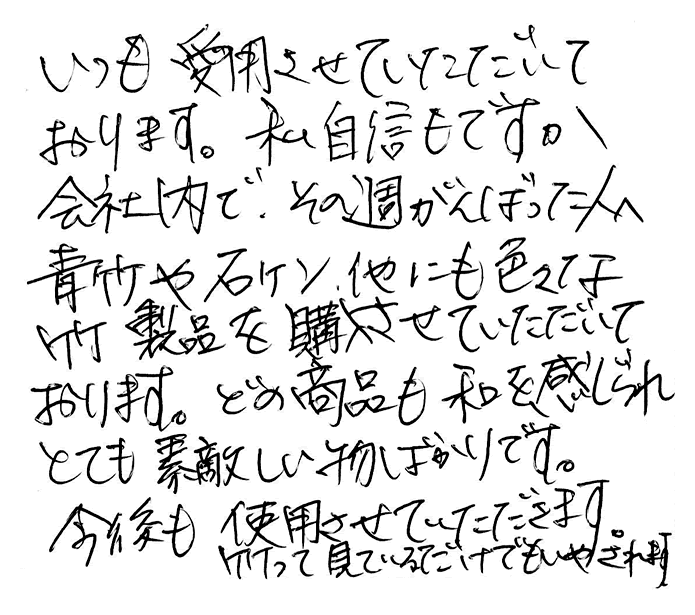 いつも愛用させていただいて
おります。私自信もですが、
会社内で、その週がんばった人へ
青竹や石ケン、他にも色々な
竹製品を購入させていただいて
おります。どの商品も和を感じられ
とても素敵しい物ばかりです。
今後も使用させていただきます。
竹って見ているだけでもいやされます